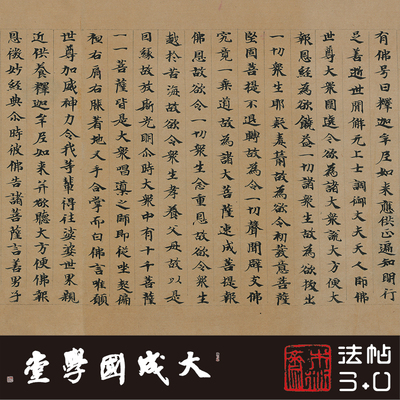 有佛号曰釋迦牟尼如来應供正遍知明行
足善逝世間解无上士調御丈夫天人師佛
世尊大衆圍遶今欲為諸大衆說大方便大
報恩經為欲饒益一切諸衆生故為欲拔出
一切衆生耶疑毒箭故為欲令初發意菩薩
堅固菩提不退轉故為令一切聲聞辟支佛
究竟一乘道故為諸大菩薩速成菩提報
佛恩故欲令一切衆生念重恩故欲令衆生
越於苦海故欲令衆生孝養父母故以是
因緣故放斯光明尒時大衆中有十千菩薩
一一菩薩皆是大衆唱導之師即從坐起偏
袒右肩右膝著地叉手合掌而白佛言唯願
世尊加威神力令我等輩得往娑婆世界親
近供養釋迦牟尼如来并欲聽大方便佛報
恩微妙經典尒時彼佛告諸菩薩言善男子
大成國學堂
法帖
3.0